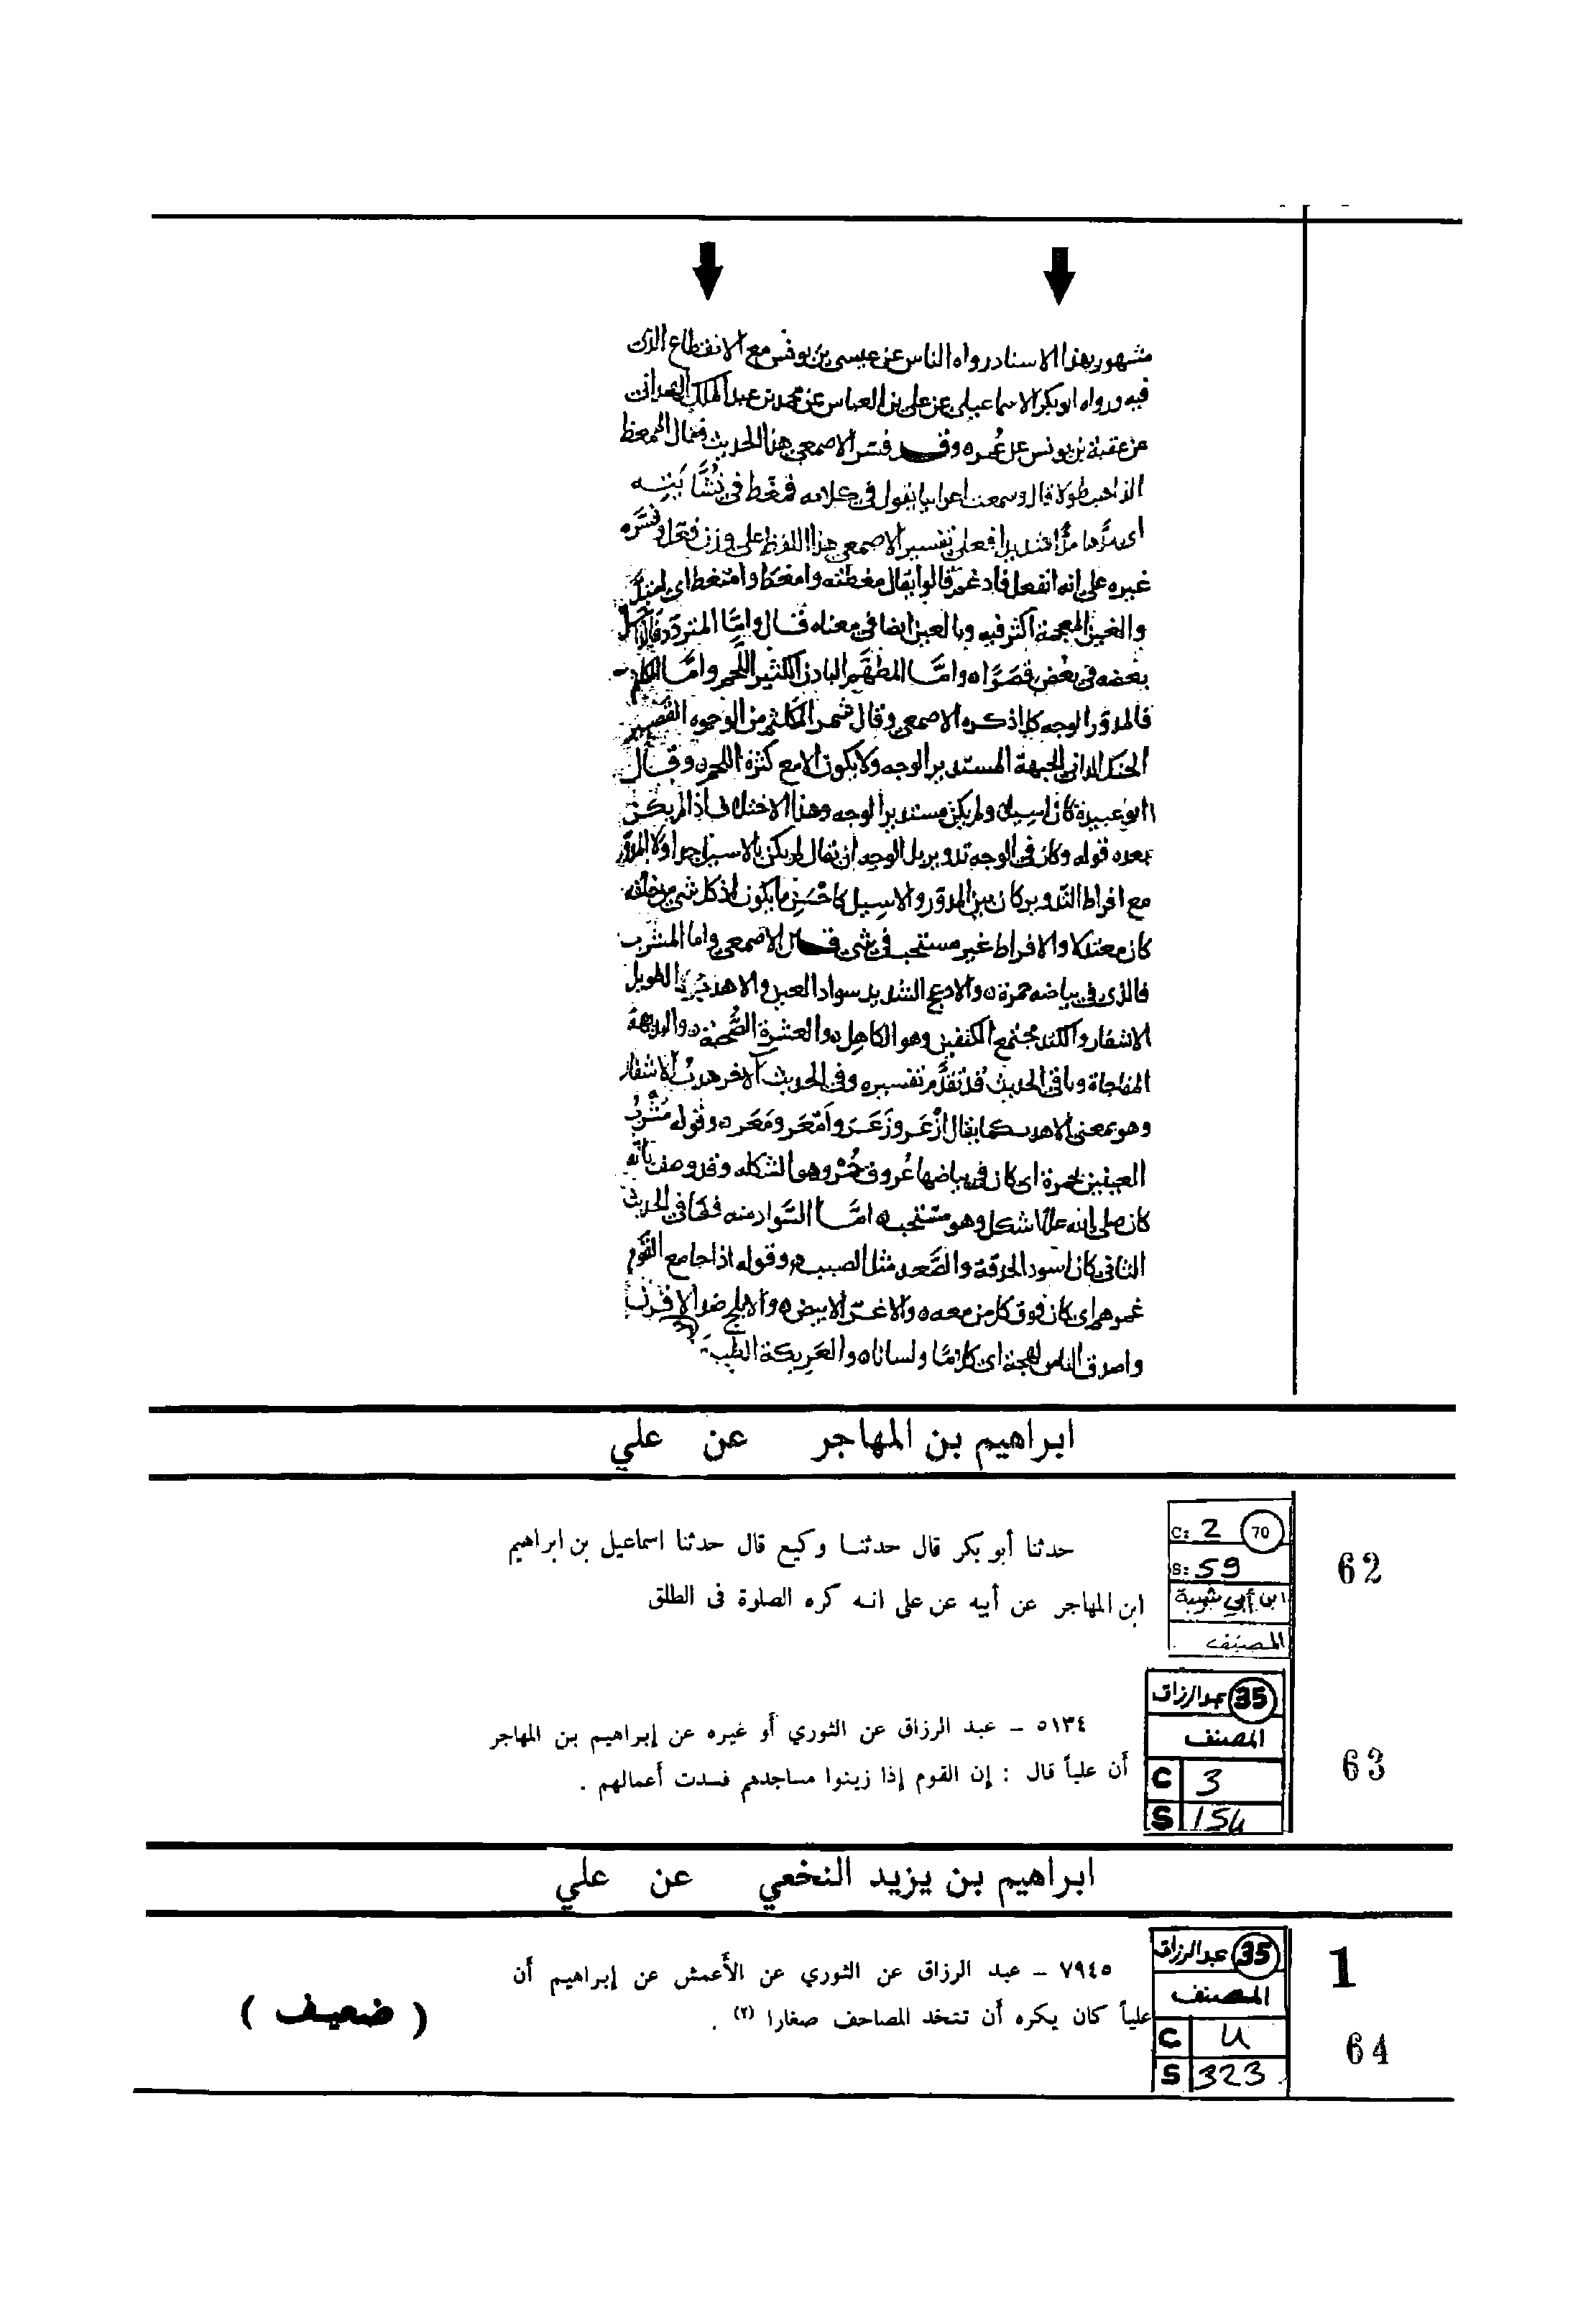 مشهور بهذا الاسناد رواه الناس عن عيسى بن يونس مع الانقطاع الذى
فيه ورواه ابو بكر الاسماعيلى عن على بن العباس عن محمد بن عبد الملك
عن عقبة بن يونس عن عمره وقد فسر الاصمعى هذا الحديث فقال الممغط
الذاهب طولا قال وسمعت اعرابيا يقول فى كلامه تمغط فى نشابته
اى مدها مدا شديدا فعلى تفسير الاصمعى هذا اللفظ على وزن وفسره
غيره على انه انفعل فادغم قالوا يقال مغطته وامغط وامتغط اى امتد
والغين المعجمة اكثر فيه وبالعين ايضا فى معناه قال واما المتردد
بعضه فى بعض قصرا ه واما المطهم البادن الكثير اللحم واما المكلثم
فالمدور الوجه كذا ذكره الاصمعى وقال شمر المكلثم من الوجوه القصير
الحنك الدانى الجبهة المستدير الوجه ولا يكون الا مع كثرة اللحم ه وقال
ابو عبيدة كان اسيلا ولم يكن مستدير الوجه وهذا الاختلاف اذا لم يكن
بعده قوله وكان فى الوجه تدوير بل الوجه ان يقال لم يكن بالاسيل جدا ولا المدور
مع افراط التدوير كان بين المدور والاسيل كاحسن ما يكون اذ كل شى من خلقه
كان معتدلا والافراط غير مستحب فى شى قال الاصمعى واما المشرب
فالذى فى بياضه حمرة ه والادعج الشديد سواد العين والاهدب الطويل
الاشفار والكتد مجتمع الكتفين وهو الكاهل ه والعشرة الصحبة ه والبديهة
المفاجاة وباقى الحديث قد تقدم تفسيره وفى الحديث الاخر هدب الاشفار
وهو بمعنى الاهدب كما يقال ازعر وزعر وامعر ومعر ه وقوله مشرب
العينين بحمرة اى كان فى بياضها عروق حمر وهو الشكله وقد وصف بانه
كان صلى الله عليه اشكل وهو مستحب ه اما السواد منه فكما فى الحديث
الثانى كان اسود الحدقة والصعد مثل الصبب ه وقوله اذا جامع القوم
غمرهم اى كان فوق كل من معه ه والاغر الابيض ه والابلج ضد الاقرن
واصدق الناس لهجة اى كلاما ولسانا ه والعريكة الطبيعة
ابراهيم بن المهاجر عن علي
C: 2 70
S: 59
ابن أبي شيبة
المصنف
62
حدثنا أبو بكر قال حدثنا وكيع قال حدثنا اسماعيل بن ابراهيم
ابن المهاجر عن أبيه عن على انه كره الصلوة فى الطلق
35 عبد الرزاق
المصنف
C 3
S 154
63
٥١٣٤ – عبد الرزاق عن الثوري أو غيره عن إبراهيم بن المهاجر
أن علياً قال : إن القوم إذا زينوا مساجدهم فسدت أعمالهم .
ابراهيم بن يزيد النخعي عن علي
35 عبد الرزاق
المصنف
C 4
S 323
1
64
٧٩٤٥ – عبد الرزاق عن الثوري عن الأعمش عن إبراهيم أن
علياً كان يكره أن تتخذ المصاحف صغارا (٢) .
( ضعيف )